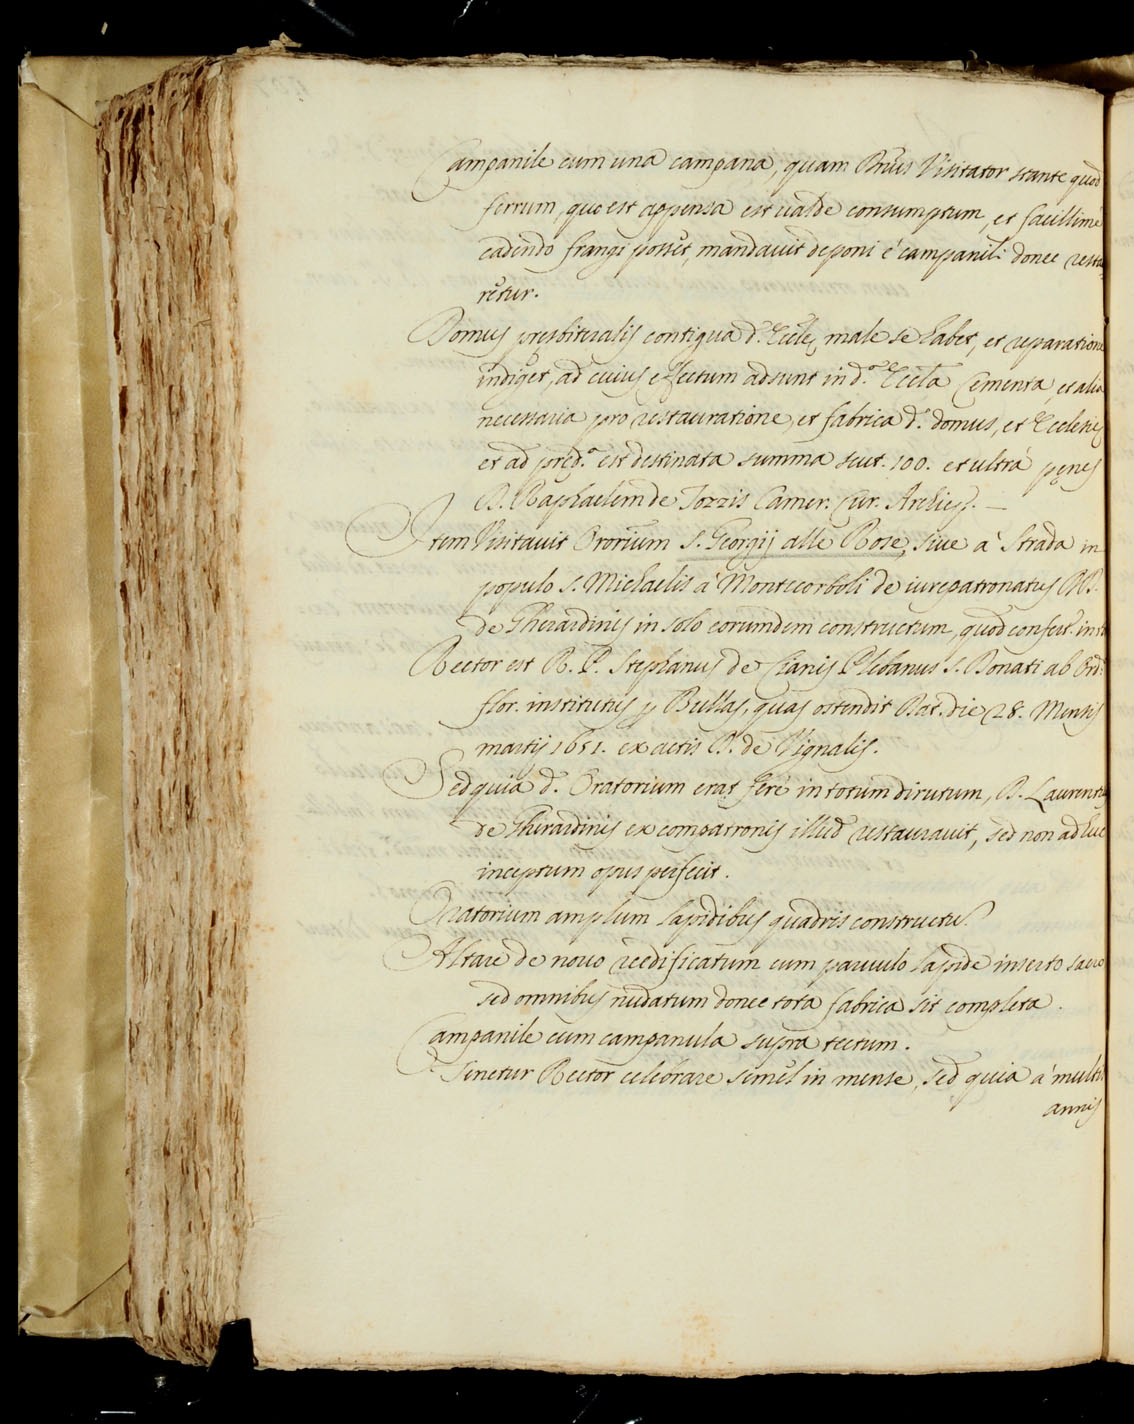 Campanile cum una campana, quam Dnus Visitator stante quod
ferrum, quo est appensa est ualde consumptum, et facillime
cadendo frangi posset, mandauit deponi é campanili donec resta
retur.
Domus presbiteralis contigua d. Eccle, male se habet, et reparatione
indiget, ad cuius effectum adsunt in d.a Eccla Cementa, et alia
necessaria pro restauratione, et fabrica d. domus, et Ecclesie
et ad pred.a est destinata summa scut. 100. et ultrà penes
D. Raphaelem de Tozzis Camer. Cur. Archiep. —
Item Visitauit Ororium S. Georgij alle Rose, siue à Strada in
populo S. Michaelis à Montecorboli de iurepatronatus DD.
de Gherardinis in solo eorumdem constructum, quod confert. in
Rector est R. P. Stephanus de Cianis Plebanus S. Donati ab Ord.
flor. institutus p Bullas, quas ostendit Dat. die 28. Mensis
martij 1651. ex actis D. de Vignalis.
Sed quia d. Oratorium erat ferè in totum dirutum, D. Laurentius
de Gherardinis ex compatronis illud restaurauit, sed non adhuc
inceptum opus perfecit.
Oratorium amplum lapidibus quadris constructu.
Altare de nouo reedificatum cum paruulo lapide inserto sacro
sed omnibus nudatum donec tota fabrica sit completa.
Campanile cum campanula supra tectum.
Tenetur Rector celebrare semel in mense, sed quia à multis
annis